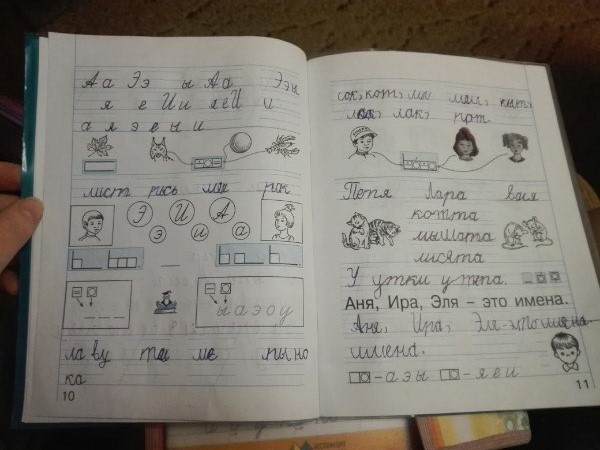 А а Э э ы А а Э э ы
я е И и я е И и
а я э е ы и
лист рысь мяч рак
Э И А
э и а
ы а э о у
ла ву ты ме ны но
ка
10
сок, кот, ма мал, кит,
мак, лак, крот.
Петя Лара Вася
котята
мышата
лисята
У утки утята.
Аня, Ира, Эля – это имена.
Аня, Ира, Эля - это имена
имена.
– а э ы – я е и
11